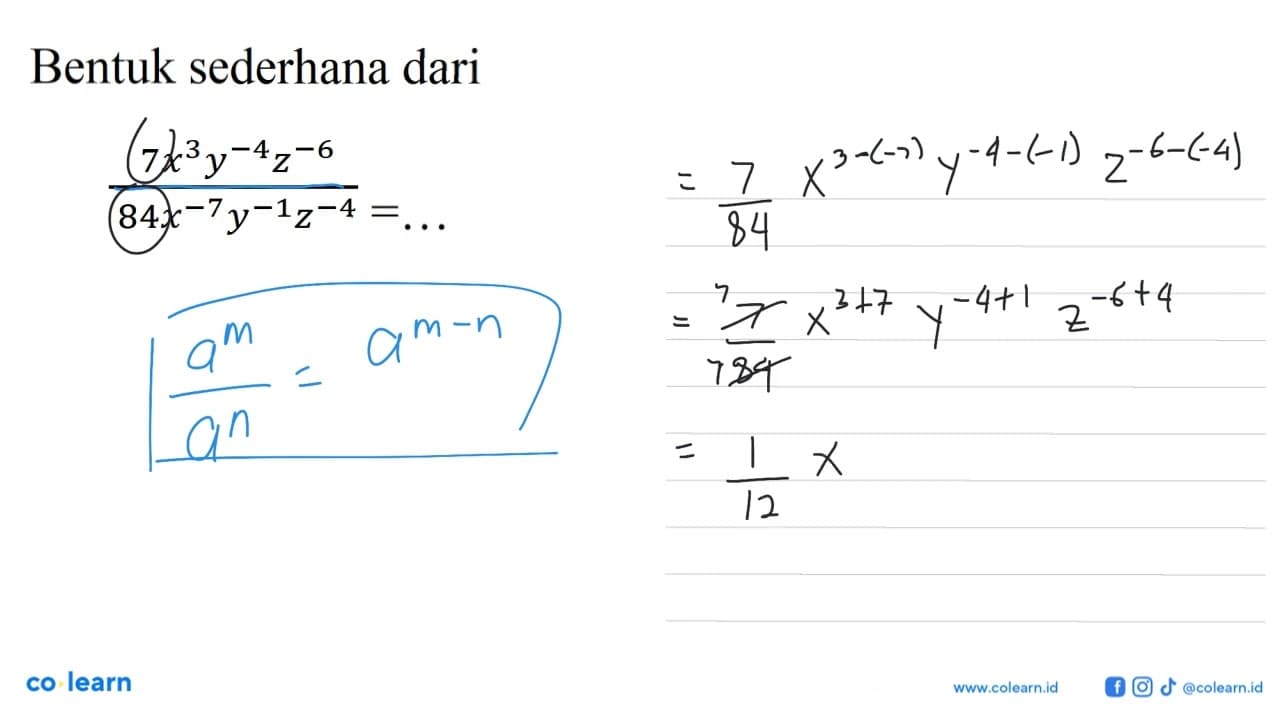 Bentuk sederhana dari
7x³y⁻⁴z⁻⁶
84x⁻⁷y⁻¹z⁻⁴ = ...
a^m
a^n
= a^(m-n)
= 7/84 x^(3-(-7)) y^(-4-(-1)) z^(-6-(-4))
= 7 7/7 84 x^(3+7) y^(-4+1) z^(-6+4)
= 1/12 x
co learn
www.colearn.id
@colearn.id